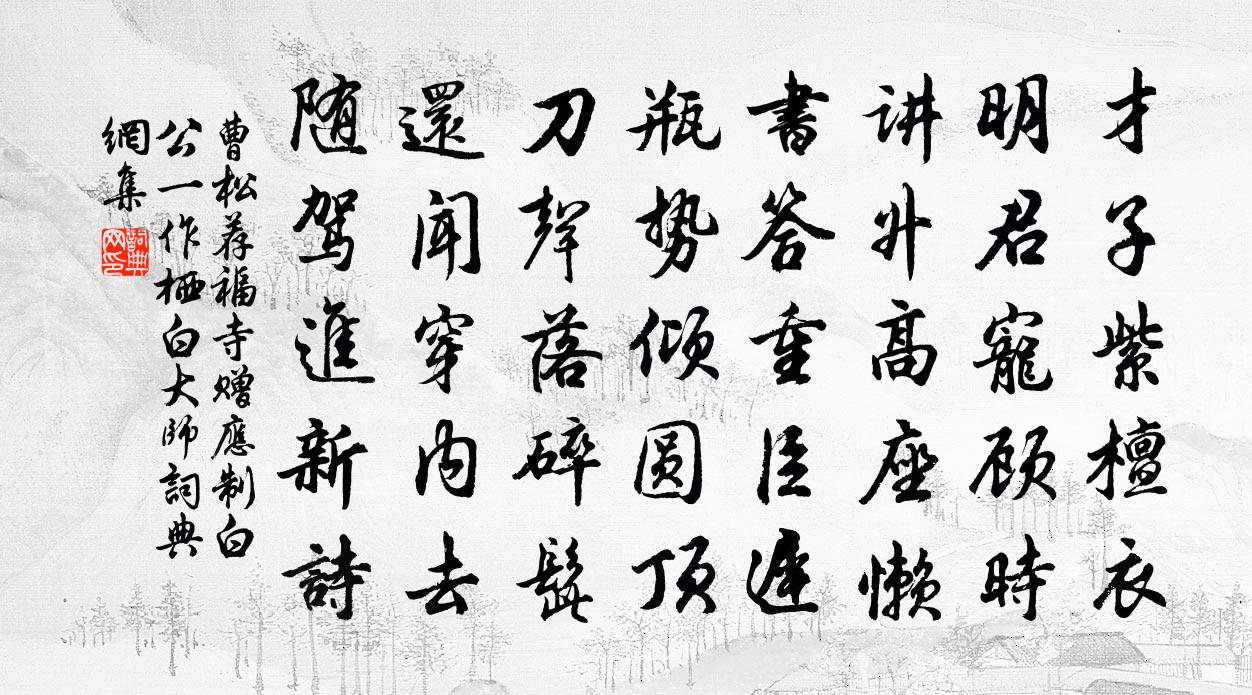 才子紫檀衣
明君寵顾時
讲升高座懒
書答重臣遲
瓶势傾圆顶
刀聲落碎髭
還聞穿内去
随驾進新詩
曹松荐福寺赠應制白
公一作栖白大师詞典
網集
詞典
网印